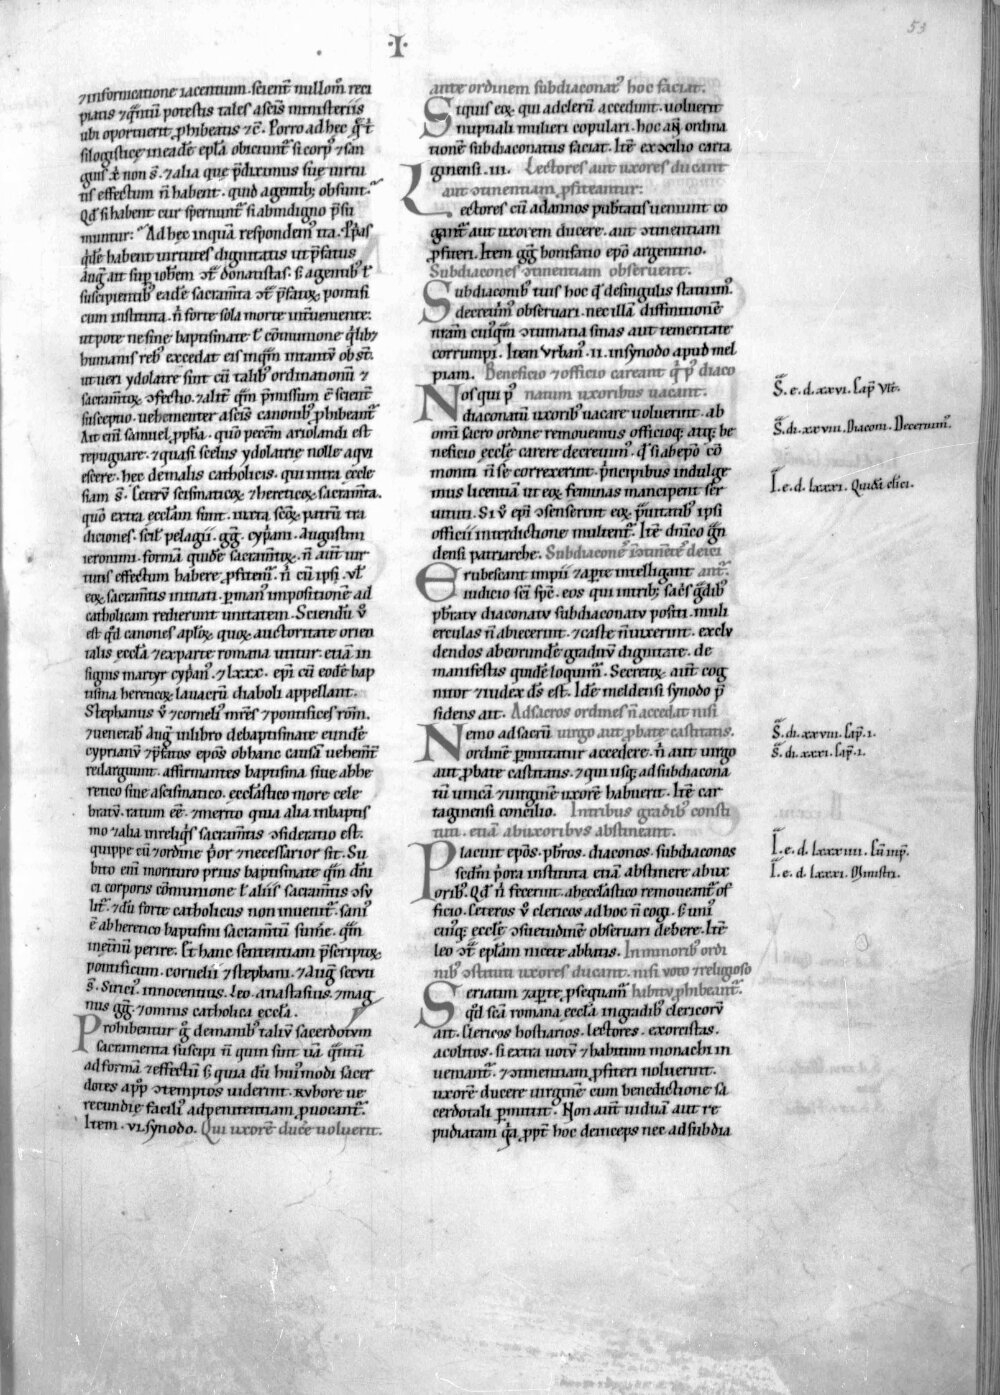 53
·I·
⁊informatione iacentium. scient̄ nullom̄ reci
piant ⁊ q̄ntū potestis tales a sc̄is ministeriis
ubi oportuerit p̱hibeatis ⁊c̄. Porro ad hec q̄ t̄
silogistice in eadē ep̄la obiciunt᷑ si corp᷒ ⁊ san
guis x̄ non ⁊ alia que p̄diximus sue uirtu
tis effectum n̄ habent. quid agentib; obsunt.
Qd̄ si habent cur spernunt᷑ si ab indigno p̄su
muntur: Ad hec inquā respondem᷒ ita. Ip̄as
qidē habent uirtutes dignitatis ut p̄fatus
Aug᷒ ait sup ioh̄em ɔt̄ donatistas. s; agentib᷒ ł
suscipientib᷒ eadē sacram̄ta ɔt̄ p̄fatoꝝ pontifi
cum instituta. n̄ forte sola morte int̄ueniente:
utpote ne sine baptismate ł cōmunione q̄lib;
humanis reb᷒ excedat eis inq̄m intantū obst̄.
ut ueri ydolatre sint cū talib᷒ ordinationū ⁊
sacram̄toꝝ ɔfectio. ⁊ alit̄ q̄m p̄missum ē scient̄
susceptio. uehementer a sc̄is canonib᷒ p̱hibeant᷑.
Ait eni samuel p̱ph̄a. quō peccm̄ ariolandi est
repugnare. ⁊ quasi scelus ydolatrie nolle aq̱i
escere. hec de malis catholicis. qui intra eccle
siam s̄. Ceterū scismaticoꝝ ⁊ hereticoꝝ sacram̄ta.
quō extra eccl̄am fiunt. iuxta sc̄oꝝ patrū tra
diciones. scil᷒ pelagii. gg̃. cyp̱ani. augustini
ieronimi. formā quidē sacram̄toꝝ. n̄ aut̄ uir
tutis effectum habere p̱fitem᷑. n̄ cū ipsi. vł
eoꝝ sacram̄tis initiati. p̱ man᷒ impositionē ad
catholicam redierunt unitatem. Sciendū v̄
est qd̄ canones apłoꝝ quoꝝ auctoritate orien
talis eccl̄a ⁊ ex parte romana utitur. etiā in
signis martyr cyp̱an᷒. ⁊ lxxx. ep̄i cū eodē bap
tisma hereticoꝝ lauacrū diaboli appellant.
Stephanus v̄ ⁊ corneli᷒ mr̄es ⁊ pontifices rom̄.
⁊ uenerab̄ Aug᷒ in libro de baptismate eundē
cyprianū ⁊ p̄fatos ep̄os ob hanc causā uehem̄t̄
redarguunt. affirmantes baptisma siue ab he
retico siue a scismatico. eccl̄astico more cele
bratū. ratum eē. ⁊ merito quia alia in baptis
mo ⁊ alia in reliq̱s sacram̄tis ɔsideratio est.
quippe cū ⁊ ordine p̱or ⁊ necessarior sit. Su
bito eni morituro prius baptismate q̄m dn̄i
ci corporis cōmunione ł aliis sacram̄tis ɔsu
lit᷑. ⁊ dū forte catholicus non inuenit᷑. sani᷒
ē ab heretico baptismi sacram̄tū sum̄e. q̄m
inet̄nū perire. Et hanc sententiam p̄scriptoꝝ
pontificum. cornelii ⁊ stephani. ⁊ Aug᷒ secuti
s̄. Sirici᷒. innocentius. Leo. anastasius. ⁊ mag
nus gg̃. ⁊ omnis catholica eccl̄a.
Prohibentur g̊ de manib᷒ taliū sacerdotum
sacramenta suscipi n̄ quin sint ūa q̄ntū
ad formā ⁊ effectū s; quia dū hui᷒modi sacer
dotes app̱ ɔtemptos uiderint. rubore ue
recundie facili᷒ ad penitentiam p̱uocant᷑.
Item. vi. synodo. Qui uxorē duc̄e uoluerit.
ante ordinem subdiaconat᷒ hoc faciat.
Siquis eoꝝ qui ad clerū accedunt. uoluerit
nuptiali mulieri copulari. hoc añ ordina
tionē subdiaconatus faciat. Itē ex ɔcilio carta
ginensi. iii. Lectores aut uxores ducant
aut ɔtinentiam p̱fiteantur:
Lectores cū ad annos puḇtatis uenunt co
gant᷑ aut uxorem ducere. aut ɔtinentiam
p̱fiteri. Item gg̃ bonifatio ep̄o argentino.
Subdiacones ɔtinentiam obseruent.
Subdiaconib᷒ tuis hoc qd̄ de singulis statuim᷒.
decreuim᷒ obseruari. nec illā diffinitionē
nr̄am cui᷒q̄m ɔtumatia sinas aut temeritate
corrumpi. Item Vrban᷒. ii. in synodo apud mel
piam. Beneficio ⁊ officio careant q̱ p᷒ diaco
Nos qui p᷒ natum uxoribus uacant.
diaconatū uxorib᷒ uacare voluerint. ab
omi sacro ordine remouemus officioq; atq; be
neficio eccl̄e carere decreuim᷒. qd̄ si ab ep̄o cō
moniti n̄ se correxerint. p̱ncipibus indulge
mus licentiā ut eoꝝ feminas mancipent ser
uituti. Si v̄ ep̄i ɔsenserint eoꝝ p̱uitatib᷒ ipsi
officii interdictione multent᷑. Itē dn̄ico gn̄
densi patriarche. Subdiaconē ɔtinētē deici
Erubescant impii ⁊ ap̱te intelligant ant᷑.
iudicio sc̄i sp̄c. eos qui in trib; sac̄s g̃dib᷒
p̱bratu diaconatu subdiaconatu positi. muli
erculas n̄ abiecerint. ⁊ caste n̄ uixerint. exclu
dendos ab eorundē graduū dignitate. de
manifestis quidē loquim᷑. Secretoꝝ aut̄ cog
nitor ⁊ iudex ds̄ est. Idē meldensi synodo p̄
sidens ait. Ad sacros ordines n̄ accedat nisi
Nemo ad sacrū uirgo aut p̱bate castitatis.
ordinē p̱mittatur accedere. n̄ aut uirgo
aut p̱bate castitatis. ⁊ qui usq; ad subdiacona
tū unicā ⁊ uirginē uxorē habuerit. Itē car
taginensi concilio. In tribus gradib᷒ consti
tuti. etiā ab uxoribus abstineant.
Placuit ep̄os. pbr̄os. diaconos. subdiaconos
sc̄dm p̱ora instituta etiā abstinere ab ux
orib᷒. Qd̄ n̄ fecerint. ab eccl̄astico remoueant᷑ of
ficio. Ceteros v̄ clericos ad hoc n̄ cogi. s; uni᷒
cui᷒q; eccl̄e ɔsuetudinē obseruari debere. Itē
leo ɔt̄ ep̄lam nicete abbatis. In minorib᷒ ordi
nib᷒ ɔstituti uxores ducant. nisi uoto ⁊ religioso
Seriatim ⁊ ap̱te p̱sequam᷑ habitu p̱hibeant᷑.
qd̄ sc̄a romana eccl̄a in gradib᷒ clericorū
ait. Clericos hostiarios. Lectores. exorcistas.
acolitos. si extra uotū ⁊ habitum monachi in
ueniant᷑. ⁊ ɔtinentiam p̱fiteri noluerint.
uxorē ducere uirginē cum benedictione sa
cerdotali p̱mittit. Non aut̄ uiduā aut re
pudiatam q̱a ppt̄ hoc deinceps nec ad subdia
S̄. e. d. xxvi. Cap̄ Vlt̄.
S̄. di. xxviii. Diaconi. Decreuim᷒.
I. e. d. lxxxi. Quidā elici.
S̄. di. xxviii. Cap̄. i.
S̄. di. xxxi. Cap̄. i.
I. e. d. lxxxiiii. Cū inp̱.
I. e. d. lxxxi. Ministri.